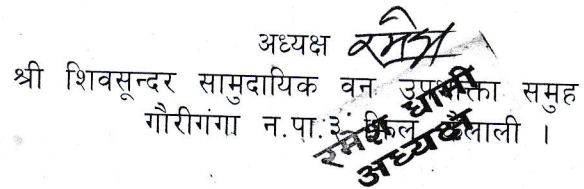 अध्यक्ष रमेश
श्री शिवसून्दर सामुदायिक वन उपभोक्ता समुह
गौरीगंगा न.पा.३ कैलाली ।
रमेश धामी
अध्यक्ष